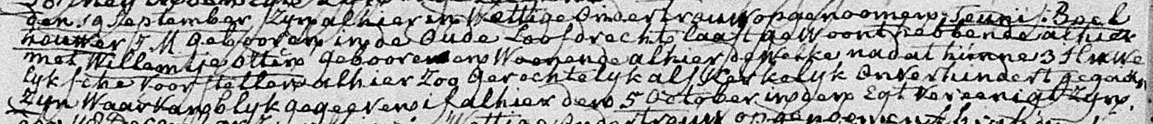 den 19 September Zyn alhier in Wettige Ondertrouw opgenoomen Teunis Boek
houwer J M gebooren in de Oude Loosdrecht laast gewoont hebbende alhier
met Willemtje Otten Gebooren en Woonende alhier dewelke na dat hunne 3 Huwe
lyksche Voorstellen alhier Zoo Gerechtelyk als Kerkelyk Onverhindert gegaan
Zyn Waar van blyk gegeeven is alhier den 5 October in den Egt Vereenigt Zyn.
Wettige Ondertrouw opgenoomen